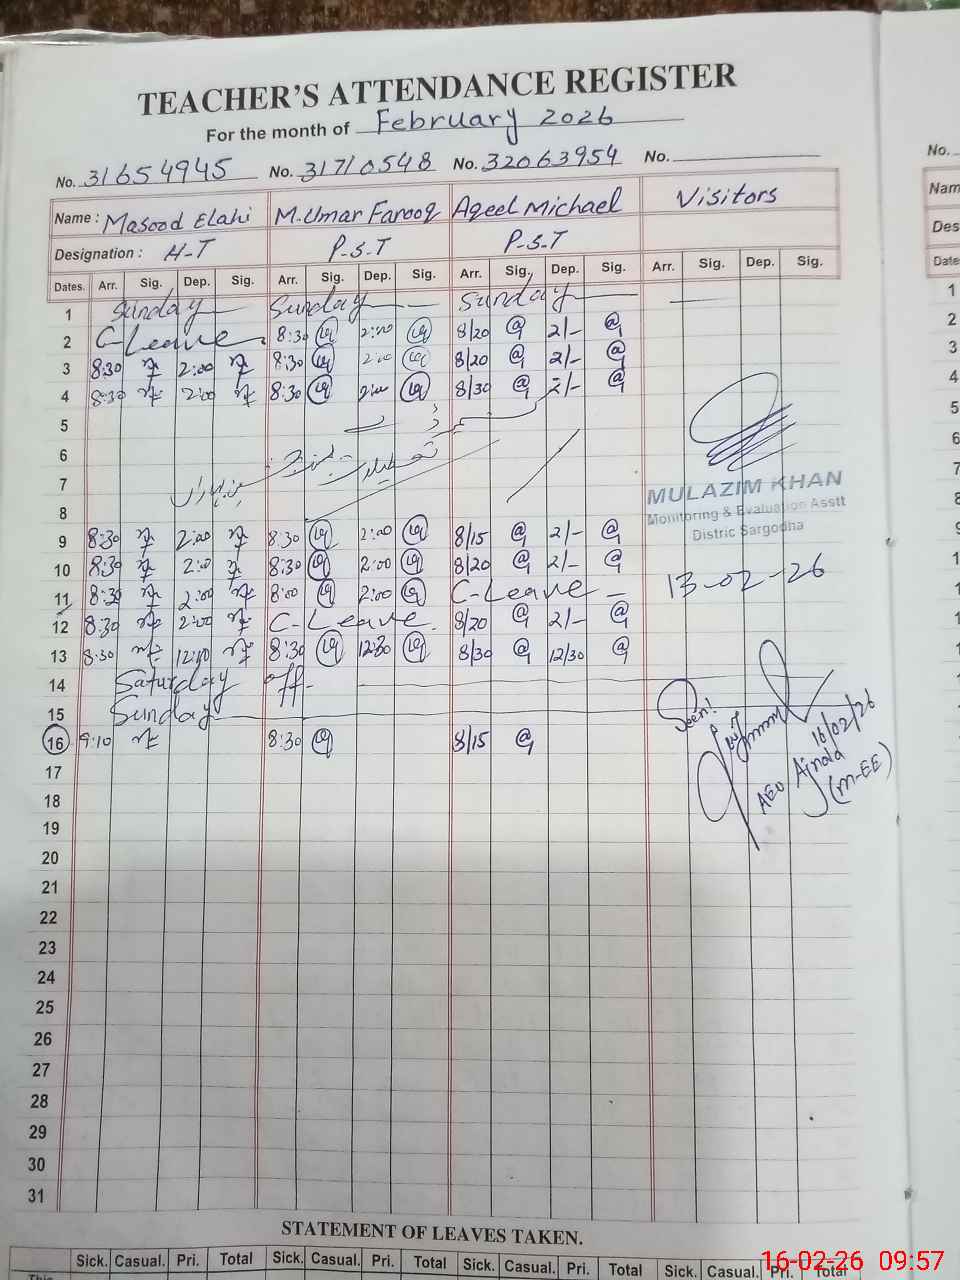 TEACHER'S ATTENDANCE REGISTER
For the month of February 2026
No. 31654945 No. 31710548 No. 32063954 No.
No.
Name : Masood Elahi M.Umar Farooq Aqeel Michael Visitors
Nam
Designation : H-T P-S-T P-S-T
Des
Dates. Arr. Sig. Dep. Sig. Arr. Sig. Dep. Sig. Arr. Sig. Dep. Sig. Arr. Sig. Dep. Sig.
Date
1 Sunday Sunday Sunday
2 C-Leave 8:30 2:00 8/20 2/-
3 8:30 2:00 8:30 2:00 8/20 2/-
4 8:30 2:00 8:30 2:00 8/30 2/-
5
6
7
8
MULAZIM KHAN
Monitoring & Evaluation Asstt
Distric Sargodha
9 8:30 2:00 8:30 2:00 8/15 2/-
10 8:30 2:00 8:30 2:00 8/20 2/-
13-02-26
11 8:30 2:00 8:00 2:00 C-Leave
12 8:30 2:00 C-Leave 8/20 2/-
13 8:30 8:30 8/30 12/30
14 Saturday off
15 Sunday
Seen!
16 9:10 8:30 8/15
16/02/26
AEO Ajnala
(M-EE)
17
18
19
20
21
22
23
24
25
26
27
28
29
30
31
STATEMENT OF LEAVES TAKEN.
Sick. Casual. Pri. Total Sick. Casual. Pri. Total Sick. Casual. Pri. Total Sick. Casual. Pri. Total
This
16-02-26 09:57